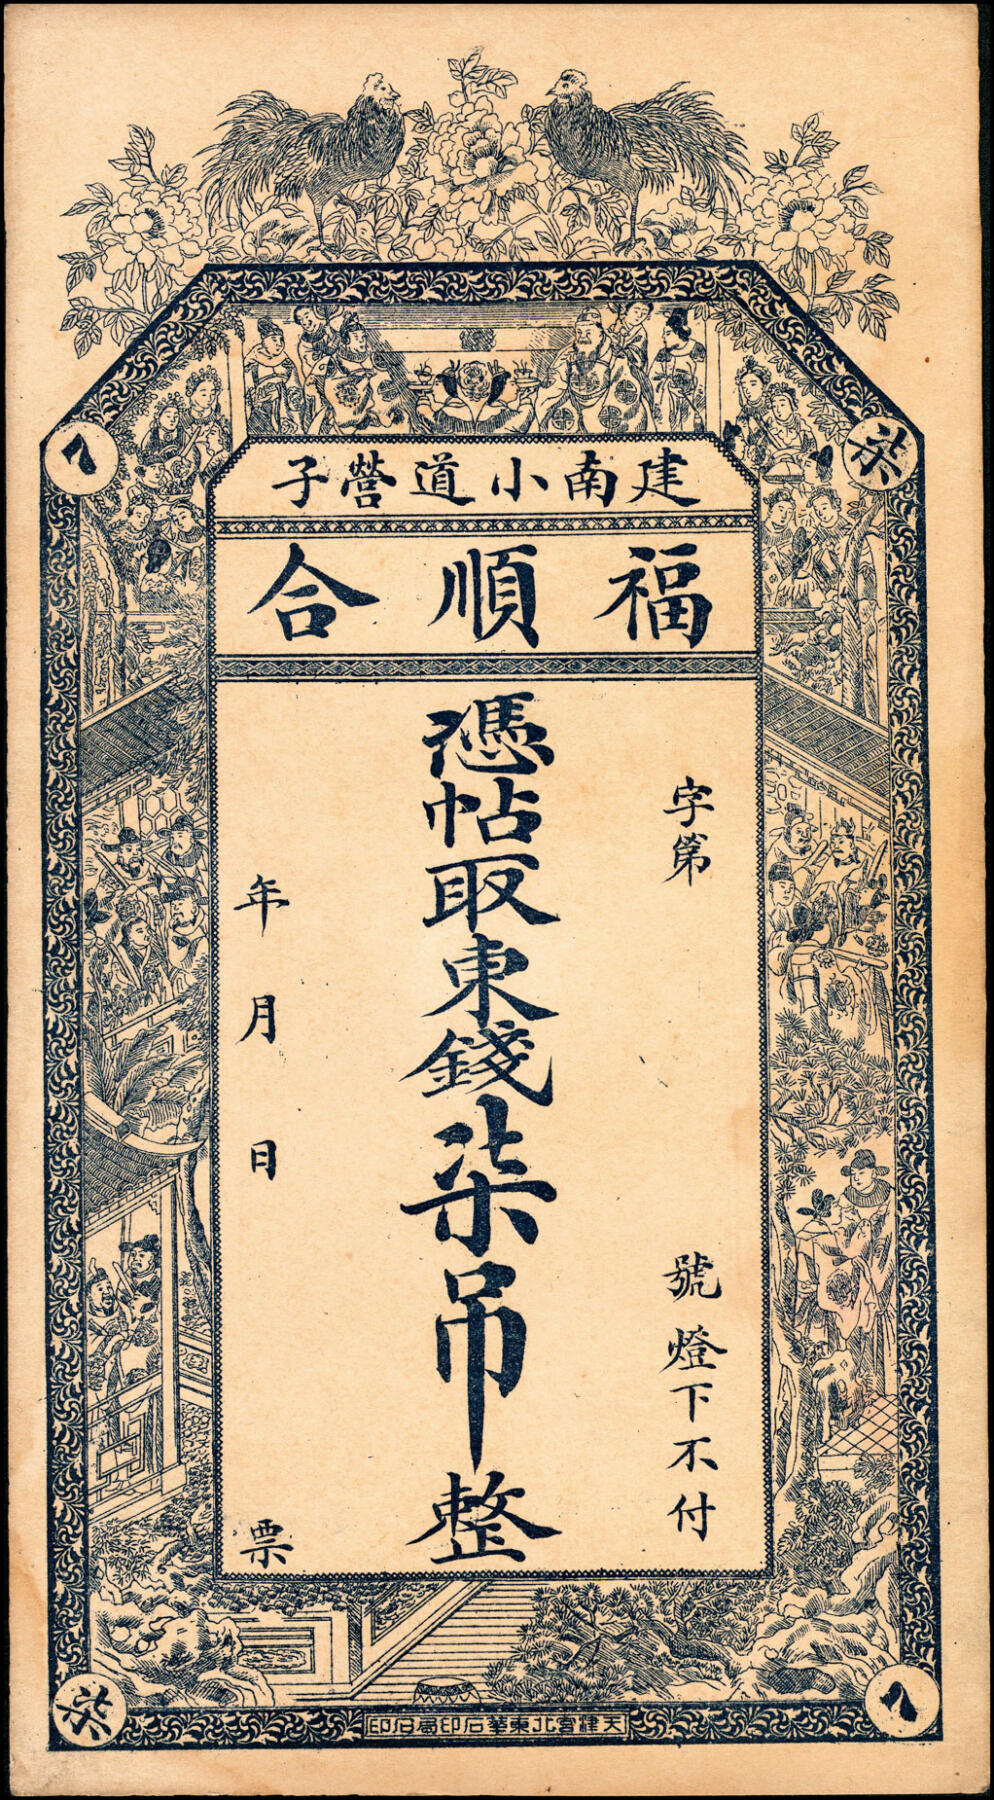 建南小道營子
福順合
字第 號燈下不付
憑帖取東錢柒吊整
年月日 票
7
柒
柒
7
天津宮北東華石印局石印